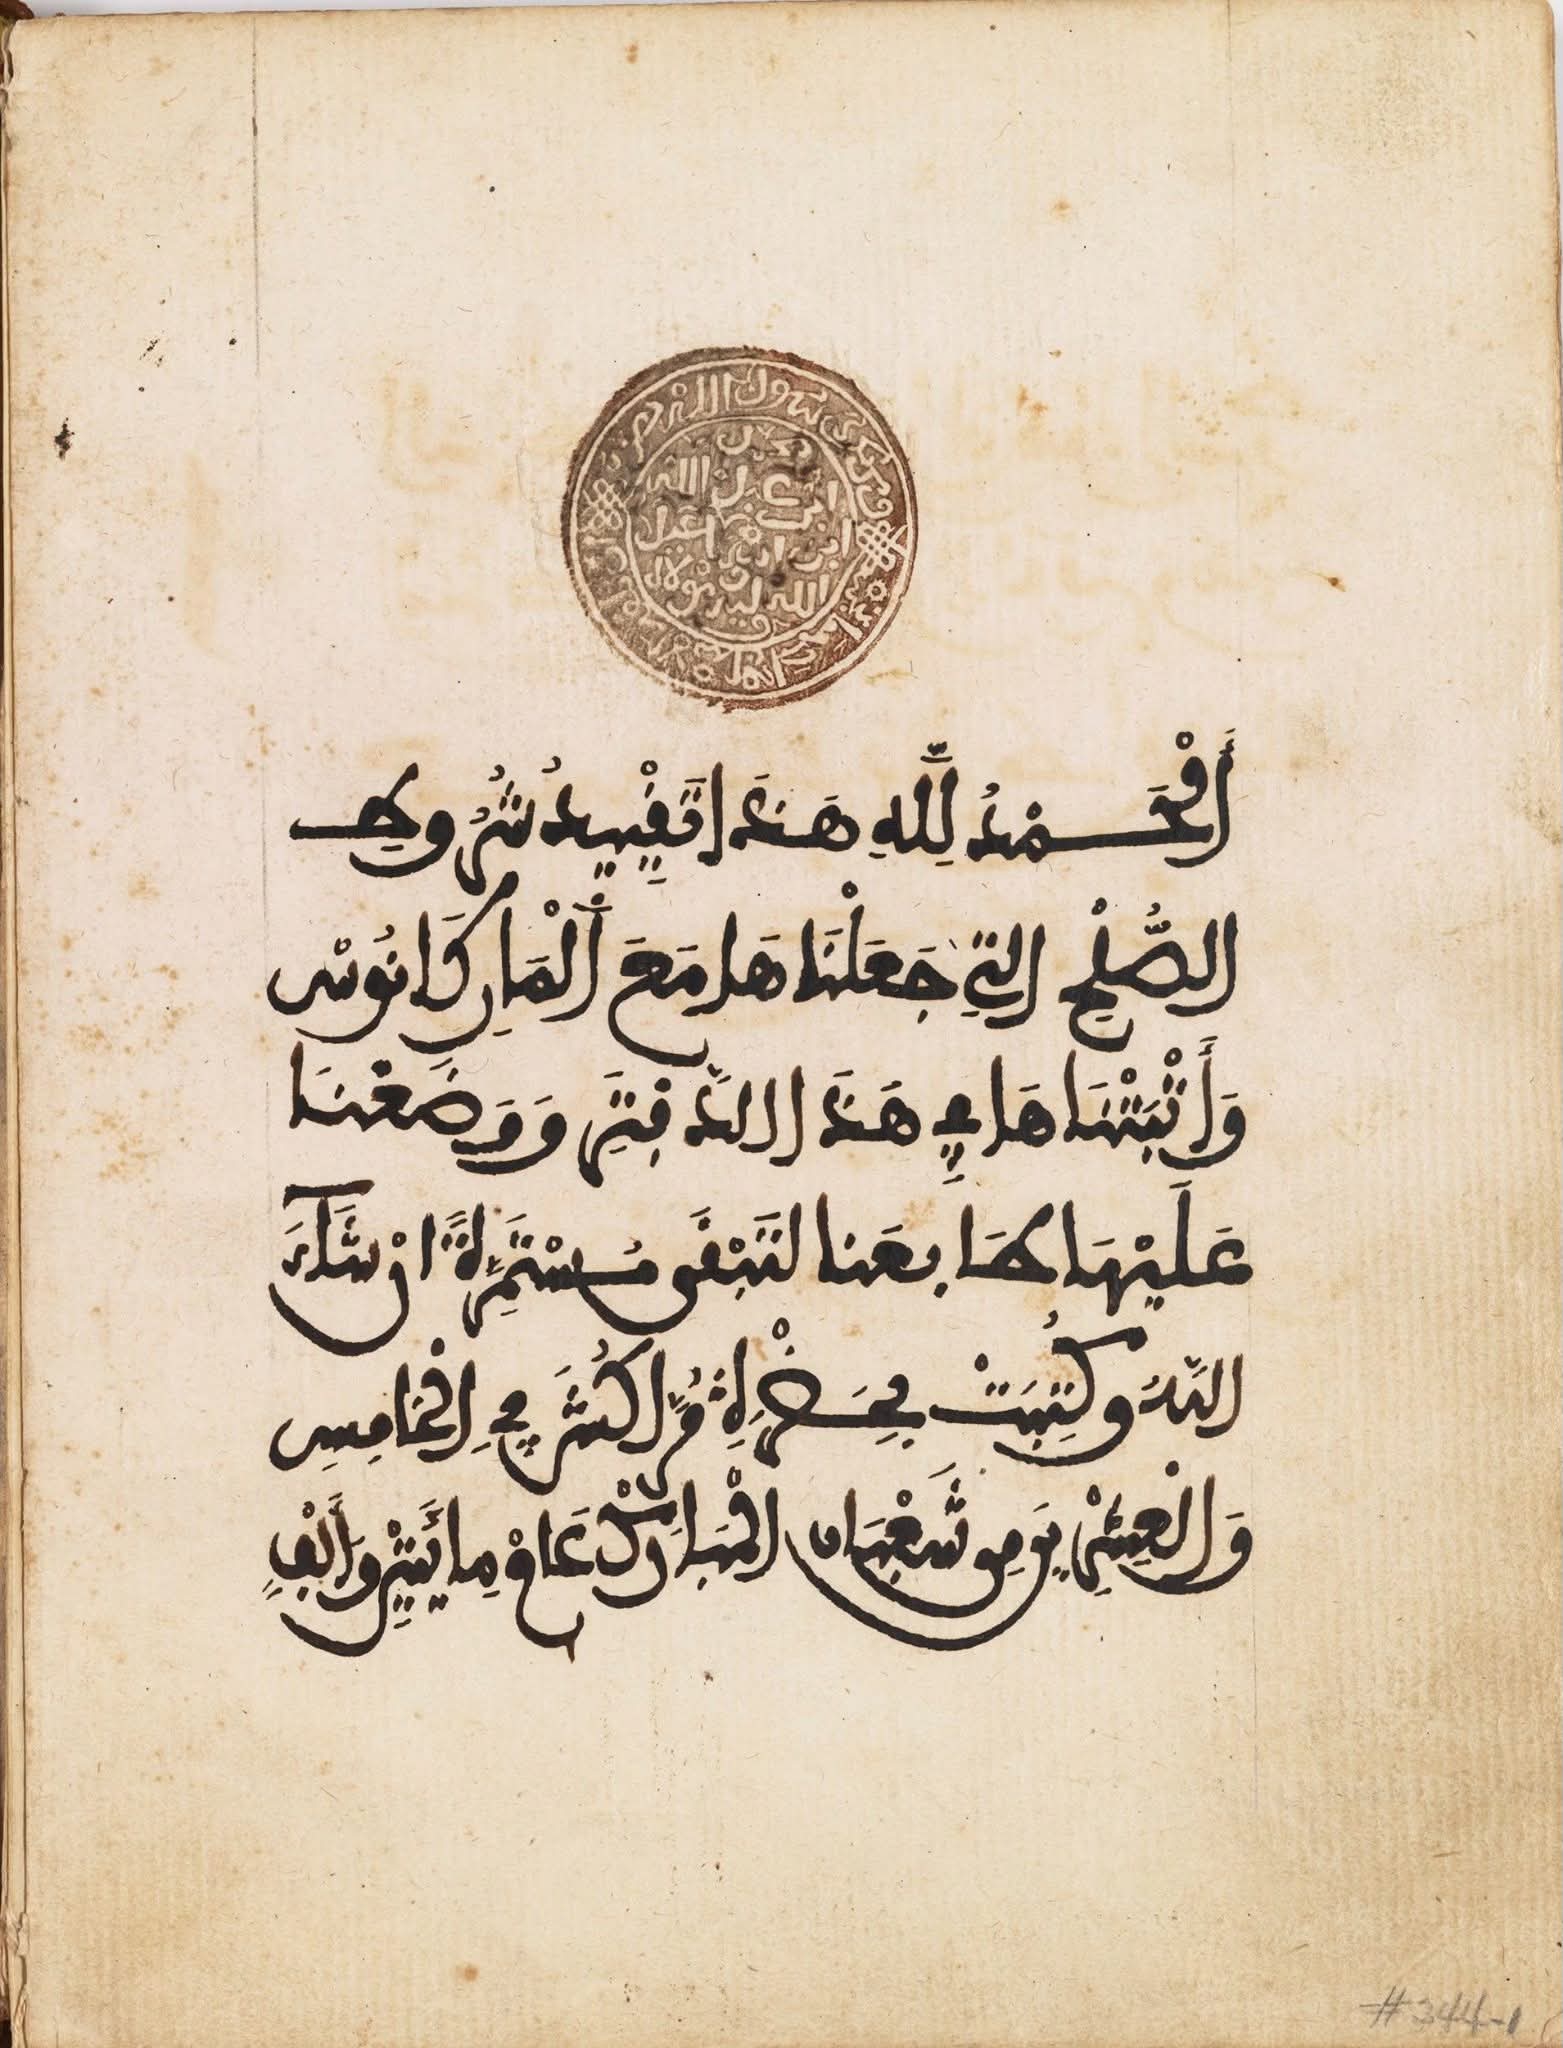 أَلْحَمْدُ لِلَّهِ هَذَا تَقْيِيدُ شُرُوطِ
الصُّلْحِ التِي جَعَلْنَاهَا مَعَ أَلْمَارِكَانُوسْ
وَأَثْبَتْنَاهَا فِي هَذَا الدَّفْتَرِ وَوَضَعْنَا
عَلَيْهَا طَابِعَنَا لِتَبْقَى مُسْتَمِرَّةً انْ شَاءَ
اللَّهُ وكُتِبَتْ بِحَضْرَةِ مُرَّاكُش فِي الْخَامِسِ
وَالْعِشْرِيوَمِن شَعْبَان الْمُبَارَكْ عَامْ مِايَتَيْنِ وَأَلْفٍ
#344-1